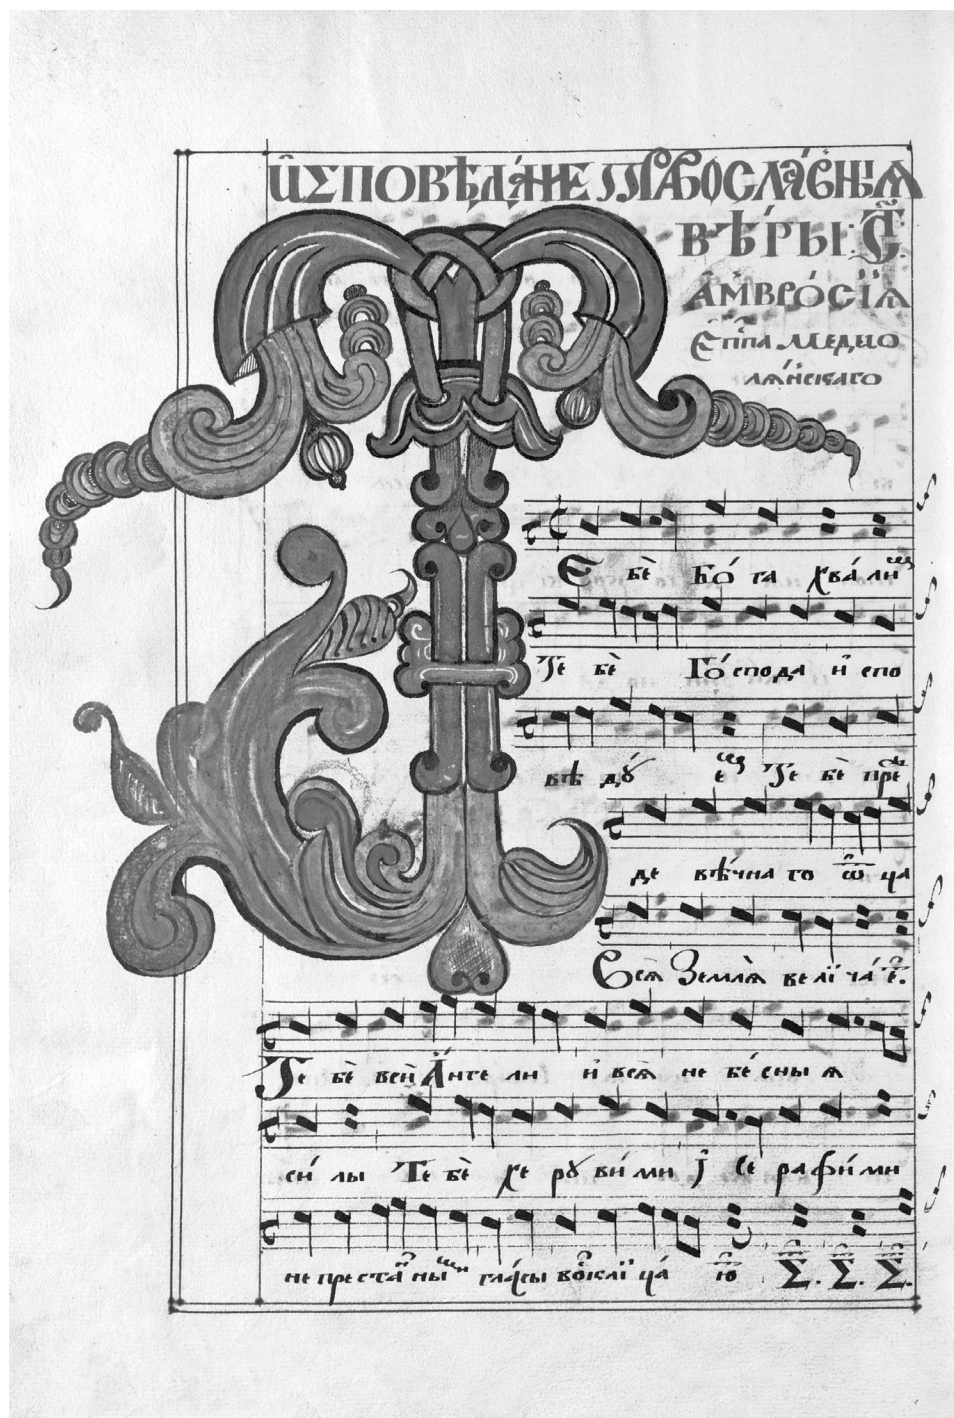 И҆СПОВѢДА́НЇЕ ПРАВОСЛА́ВНЫѦ
ВѢ́РЫ: С҃Т:
А҆МВРО́СЇѦ
Е҆ппа Медио
лѧ́нскаго
Т Е бѐ Бо́ га хва́ лим
Те бѐ Го́спода и҆ спо
вѣ ду́ ем Те бѐ пре
де вѣ́чна го ѿ ца
Всѧ̀ Землѧ̀ вели ча́ е҆т.
Те бѐ вси А҆́нге ли и҆ всѧ̀ не бе́сны ѧ
си́ лы Те бѐ хе ру ви́ ми і҆ се рафи́ ми
не преста́ ны ми гла́сы воскли ца́ ю҆т С҃. С҃. С҃.